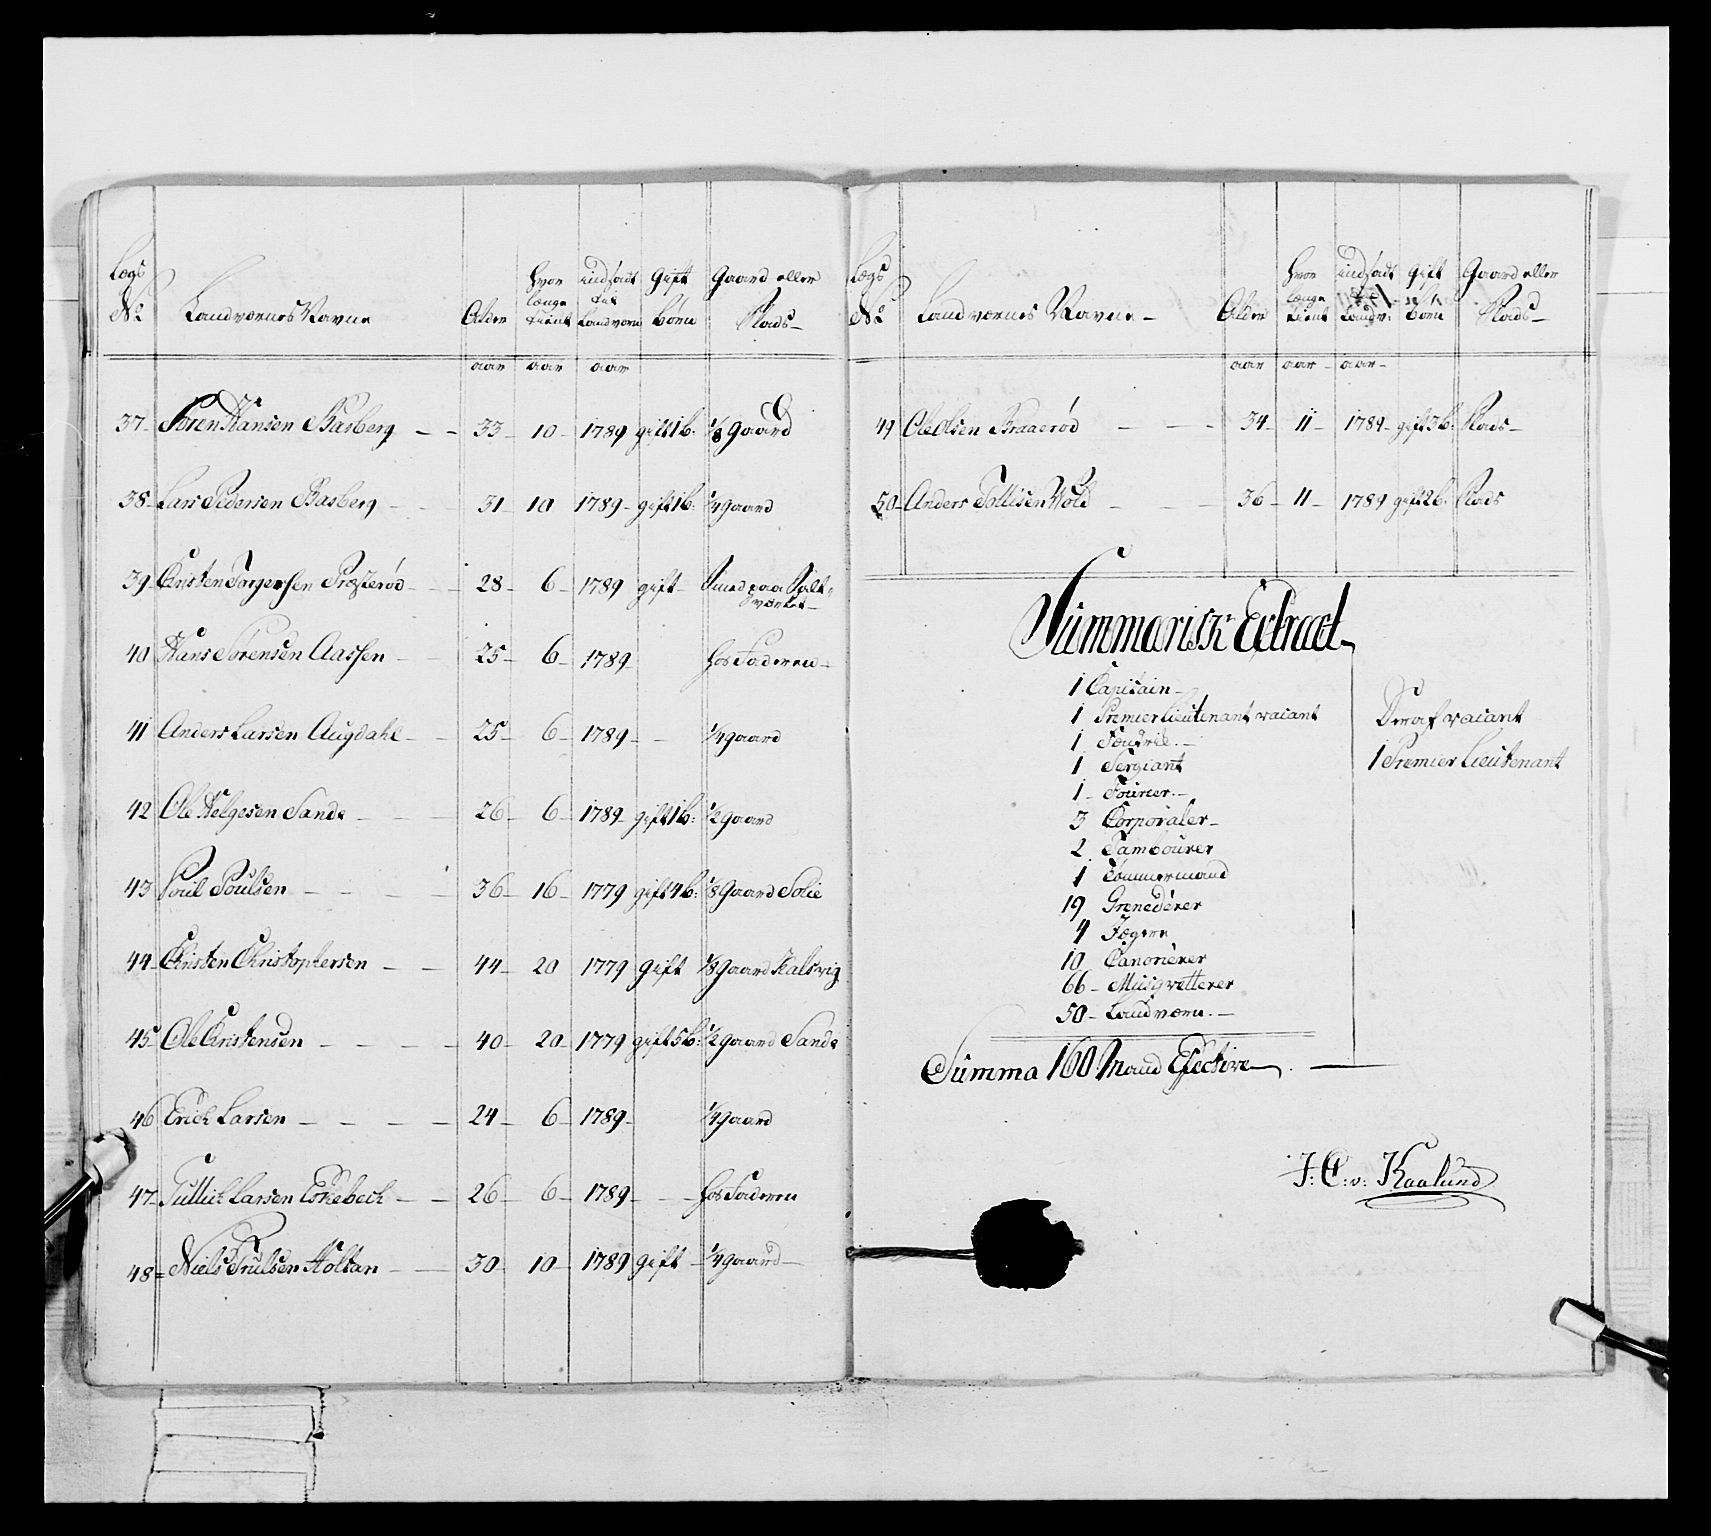 Lægs No Landværnes Navne Alder Hvor længe tient indsadt til Landværn Gift Børn Gaard eller Plads
aar aar aar
37 Søren Hansen Basberg 33 10 1789 gift 1 b: 1/8 Gaard
38 Lars Pedersen Basberg 31 10 1789 gift 1 b: 1/4 gaard
39 Christen Torgersen Præsterød 28 6 1789 gift Smed paa Salt-
værket
40 Hans Sørensen Aassen 25 6 1789 hos Faderen
41 Anders Larsen Augdahl 25 6 1789 1/4 gaard
42 Ole Helgesen Sande 26 6 1789 gift 1 b: 1/2 gaard
43 Poul Poulsen 36 16 1779 gift 4 b: 1/8 Gaard Solie
44 Christen Christophersen 44 20 1779 gift 1/8 gaard Kalsvig
45 Ole Christensen 40 20 1779 gift 5 b: 1/2 gaard Sande
46 Erich Larsen 24 6 1789 1/4 gaard
47 Tullich Larsen Eskebech 26 6 1789 hos Faderen
48 Niels Trulsen Holtan 30 10 1789 gift 1/4 gaard
Lægs No Landværnes Navne Alder Hvor længe tient indsadt Landv: Gift Børn Gaard eller Plads
aar aar aar
49 Ole Olsen Braaerød 34 11 1789 gift 3 b: Plads
50 Anders Tollisen Wold 36 11 1789 gift 2 b. Plads
Summarisk Extract
1 Capitain
1 Premier Lieutenant vacant
1
1 Sergiant
1 Fourier
3 Corporaler
2 Tambourer
1 Tømmermand
19 Grenederer
4 Jægere
10 Canonerer
66 Musqvetterer
50 Landværn
Summa 160 Mand Efective
Deraf vacant
1 Premier Lieutenant
J: C: v: Kaalund